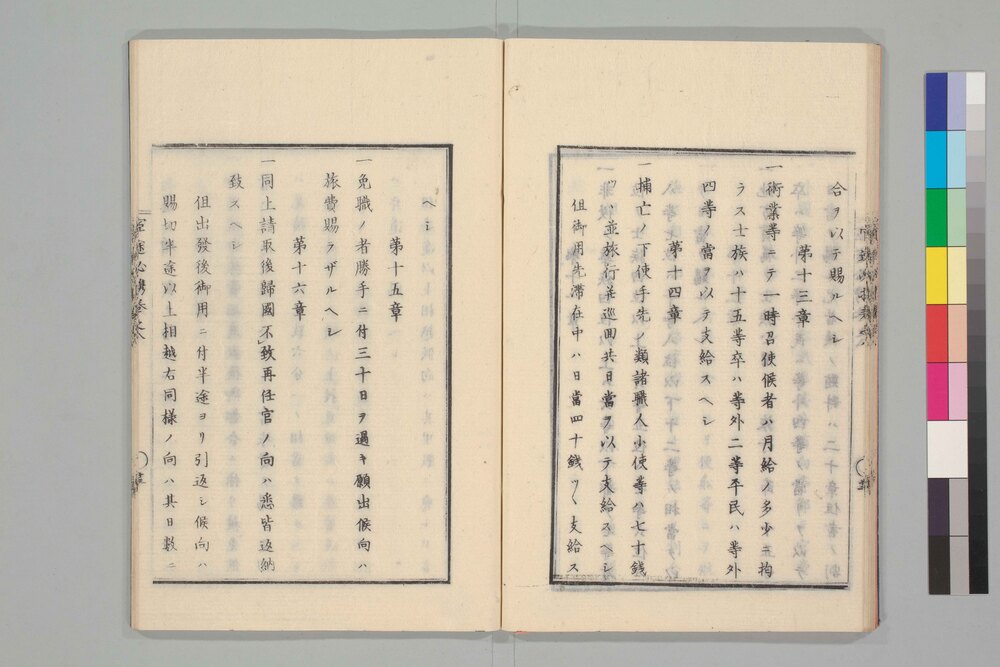 合ヲ以テ賜ルヘシ
第十三章
一術業等ニテ一時召使候者ハ月給ノ多少ニ拘
ラス士族ハ十五等卒ハ等外二等平民ハ等外
四等ノ當ヲ以テ支給スヘシ
第十四章
一捕亡ノ下使手先ノ類諸職人小使等ハ七十錢
ツヽ並旅行並巡回共日當ヲ以テ支給スヘシ
但御用先滞在中ハ日當四十錢ツヽ支給ス
ヘシ
第十五章
一免職ノ者勝手ニ付三十日ヲ過キ願出候向ハ
旅費賜ラザルヘシ
第十六章
一同上請取後歸國不致再任官ノ向ハ悉皆返納
致スヘシ
但出發後御用ニ付半途ヨリ引返シ候向ハ
賜切半途以上相越右同様ノ向ハ其日數ニ